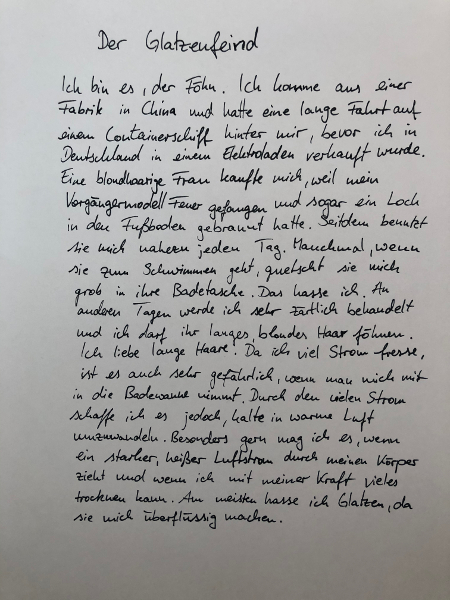 Der Glatzenfeind
Ich bin es, der Föhn. Ich komme aus einer
Fabrik in China und hatte eine lange Fahrt auf
einem Containerschiff hinter mir, bevor ich in
Deutschland in einem Elektroladen verkauft wurde.
Eine blondhaarige Frau kaufte mich, weil mein
Vorgängermodell Feuer gefangen und sogar ein Loch
in den Fußboden gebrannt hatte. Seitdem benutzt
sie mich nahezu jeden Tag. Manchmal, wenn
sie zum Schwimmen geht, quetscht sie mich
grob in ihre Badetasche. Das hasse ich. An
anderen Tagen werde ich sehr zärtlich behandelt
und ich darf ihr langes, blondes Haar föhnen.
Ich liebe lange Haare! Da ich viel Strom fresse,
ist es auch sehr gefährlich, wenn man mich mit
in die Badewanne nimmt. Durch den vielen Strom
schaffe ich es jedoch, kalte in warme Luft
umzuwandeln. Besonders gern mag ich es, wenn
ein starker, heißer Luftstrom durch meinen Körper
zieht und wenn ich mit meiner Kraft vieles
trocknen kann. Am meisten hasse ich Glatzen, da
sie mich überflüssig machen.